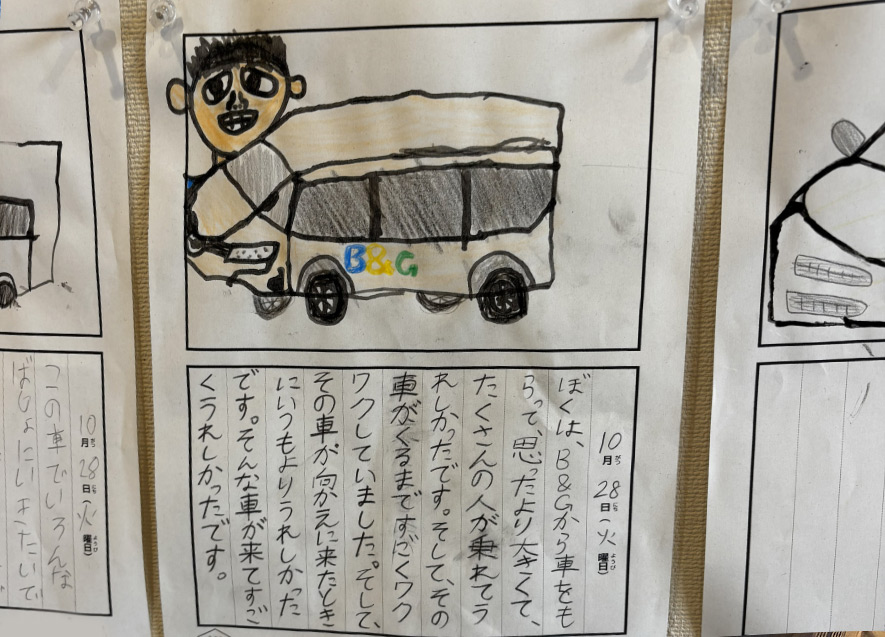 B&G
10月がつ28日にち(火曜日ようび)
ぼくは、B&Gから車をも
らって、思ったより大きくて、
たくさんの人が乗れてう
れしかったです。そして、その
車がくるまですごくワク
ワクしていました。そして、
その車が向かえに来たとき
にいつもよりうれしかった
です。そんな車が来てすご
くうれしかったです。
10月がつ28日にち(火曜日ようび)
この車でいろんな
ばしょにいきたいで